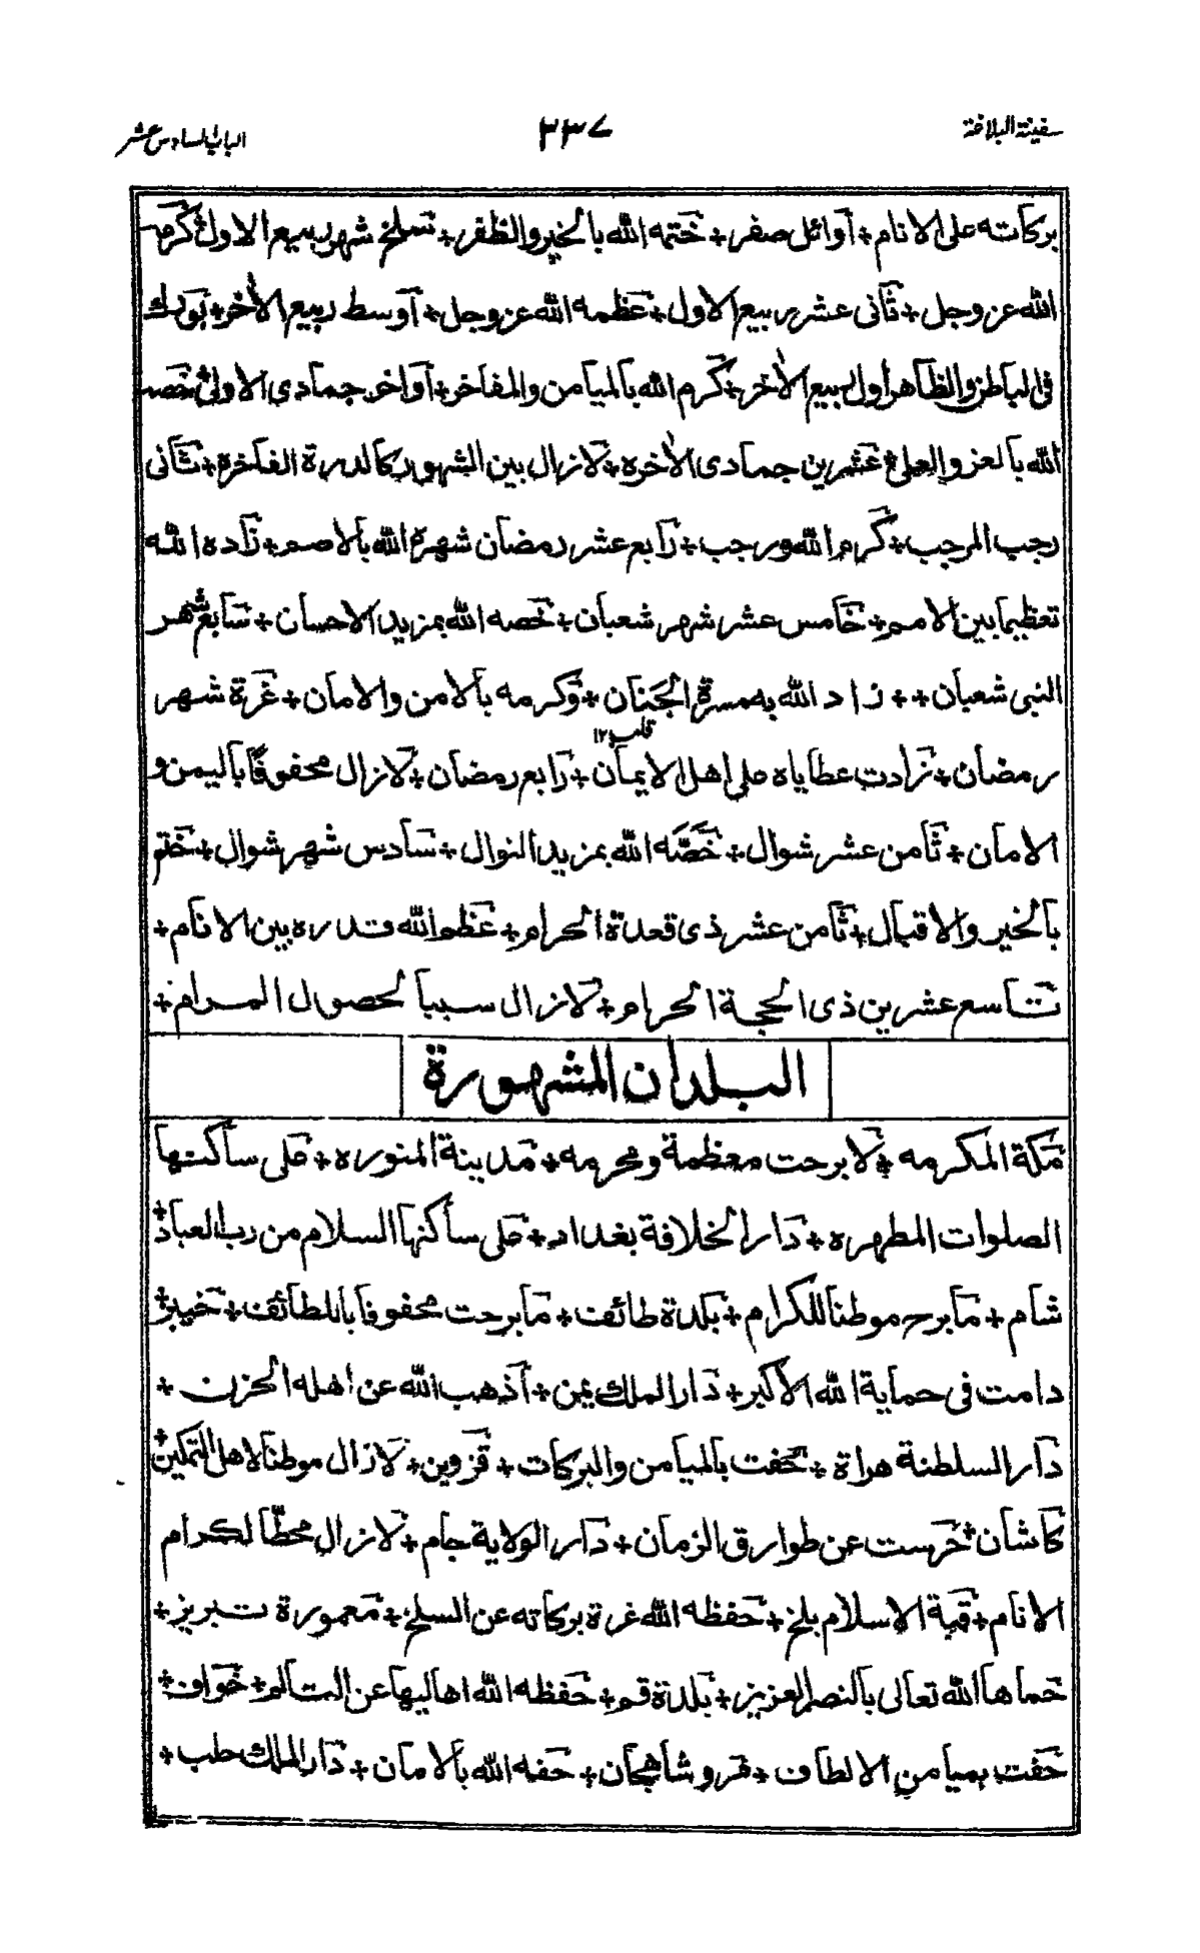 سفينة البلاغة
٣٣٧
الباب السادس عشر
بركاته على الانام + اوائل صفر + ختمه الله بالخير والظفر + تسلخ شهر ربيع الاول + كرمه
الله عز وجل + ثانى عشر ربيع الاول + عظمه الله عز وجل + اوسط ربيع الأخر + بورك
فى الباطن والظاهر اول ربيع الأخر + كرم الله بالميامن والمفاخر + اواخر جمادى الاولى + خصه
الله بالعز والعلى + عشرين جمادى الأخره + لازال بين الشهور كالدرة الفاخرة + ثانى
رجب المرجب + كرم الله ورجب + رابع عشر رمضان شهرة الله بالاصم + زاده الله
تعظيما بين الامم + خامس عشر شهر شعبان + خصه الله بمزيد الاحسان + سابع شهر
النبى شعبان + + زاد الله به مسرة الجنان + وكرمه بالامن والامان + غرة شهر
قلب ١٢
رمضان + زادت عطاياه على اهل الايمان + رابع رمضان + لازال محفوفًا باليمن و
الامان + ثامن عشر شوال + خصّه الله بمزيد النوال + سادس شهر شوال + ختم
بالخير والاقبال + ثامن عشر ذى قعدة الحرام + عظم الله قدره بين الانام +
تاسع عشرين ذى الحجة الحرام + لازال سببا لحصول المرام +
البلدان المشهورة
مكة المكرمه + لا برحت معظمة ومحرمه + مدينة المنوره + على ساكنها
الصلوات المطهره + دار الخلافة بغداد + على ساكنها السلام من رب العباد +
شام + ما برح موطنا للكرام + بلدة طائف + ما برحت محفوفا باللطائف + خيبر +
دامت فى حماية الله الاكبر + دار الملك يمن + اذهب الله عن اهله الحزن +
دار السلطنة هراة + حفت بالميامن والبركات + قزوين + لازال موطنا لاهل التمكين +
كاشان + حرست عن طوارق الزمان + دار الولاية جام + لازال محطّا لكرام
الانام + قبة الاسلام بلخ + حفظه الله غرة بركاته عن السلخ + معمورة تبريز +
حماها الله تعالى بالنصر العزيز + بلدة قم + حفظه الله اهاليها عن التالم + خواف +
حفت بميامن الالطاف + مرو شاهجان + حفه الله بالامان + دار الملك حلب +